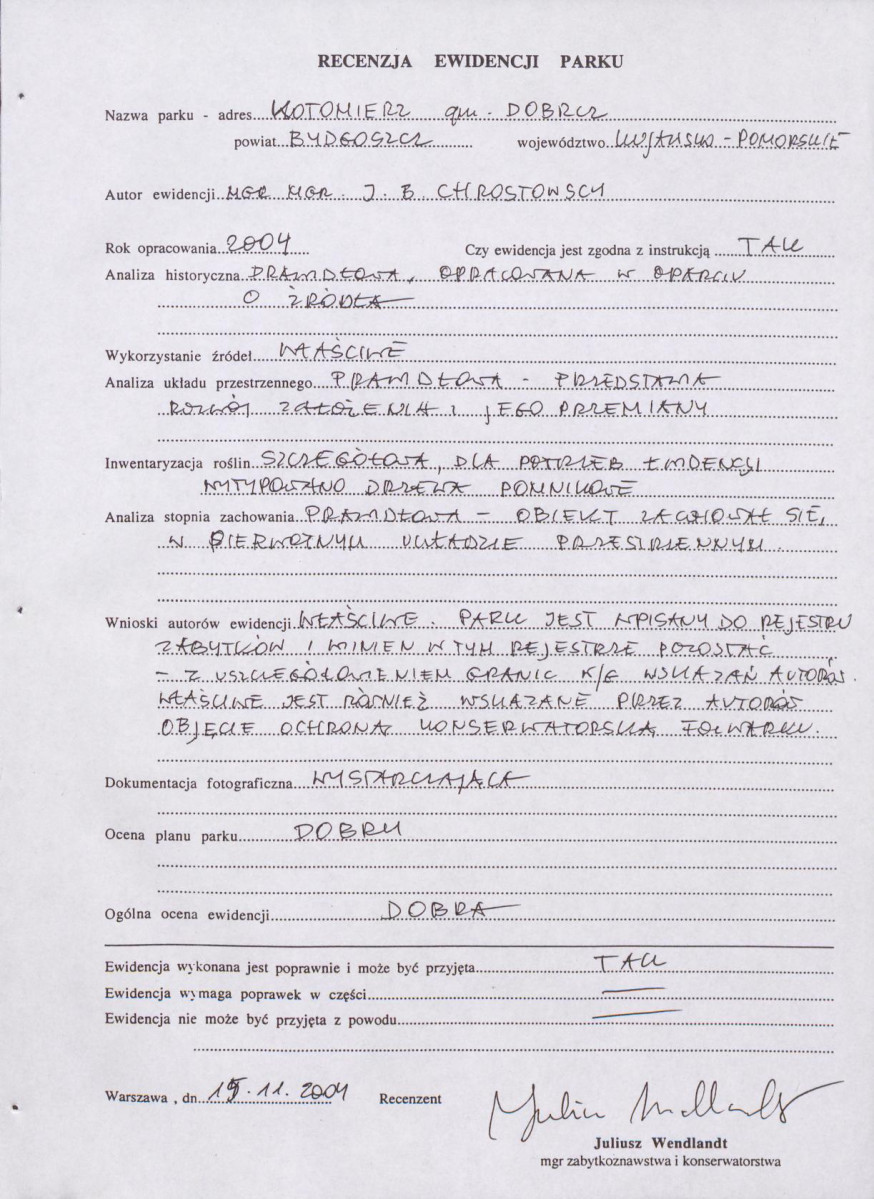 RECENZJA EWIDENCJI PARKU
Nazwa parku - adres KOTOMIERZ gm. DOBRCZ
powiat BYDGOSZCZ województwo KUJAWSKO - POMORSKIE
Autor ewidencji MGR MGR. J. B. CHROSTOWSCY
Rok opracowania 2004 Czy ewidencja jest zgodna z instrukcją TAK
Analiza historyczna PRAWIDŁOWA, OPRACOWANA W OPARCIU
O ŹRÓDŁA
Wykorzystanie źródeł WŁAŚCIWE
Analiza układu przestrzennego PRAWIDŁOWA - PRZEDSTAWIA
ROZWÓJ ZAŁOŻENIA I JEGO PRZEMIANY
Inwentaryzacja roślin SZCZEGÓŁOWA, DLA POTRZEB EWIDENCJI
WYTYPOWANO DRZEWA POMNIKOWE
Analiza stopnia zachowania PRAWIDŁOWA - OBIEKT ZACHOWAŁ SIĘ,
W PIERWOTNYM UKŁADZIE PRZESTRZENNYM.
Wnioski autorów ewidencji WŁAŚCIWE. PARK JEST WPISANY DO REJESTRU
ZABYTKÓW I WINIEN W TYM REJESTRZE POZOSTAĆ
- Z USZCZEGÓŁOWIENIEM GRANIC K/G WSKAZAŃ AUTORÓW.
WŁAŚCIWE JEST RÓWNIEŻ WSKAZANE PRZEZ AUTORÓW
OBJĘCIE OCHRONĄ KONSERWATORSKĄ FOLWARKU.
Dokumentacja fotograficzna WYSTARCZAJĄCA
Ocena planu parku DOBRY
Ogólna ocena ewidencji DOBRA
Ewidencja wykonana jest poprawnie i może być przyjęta TAK
Ewidencja wymaga poprawek w części —
Ewidencja nie może być przyjęta z powodu —
Warszawa , dn. 15.11.2004 Recenzent Juliusz Wendlandt
Juliusz Wendlandt
mgr zabytkoznawstwa i konserwatorstwa